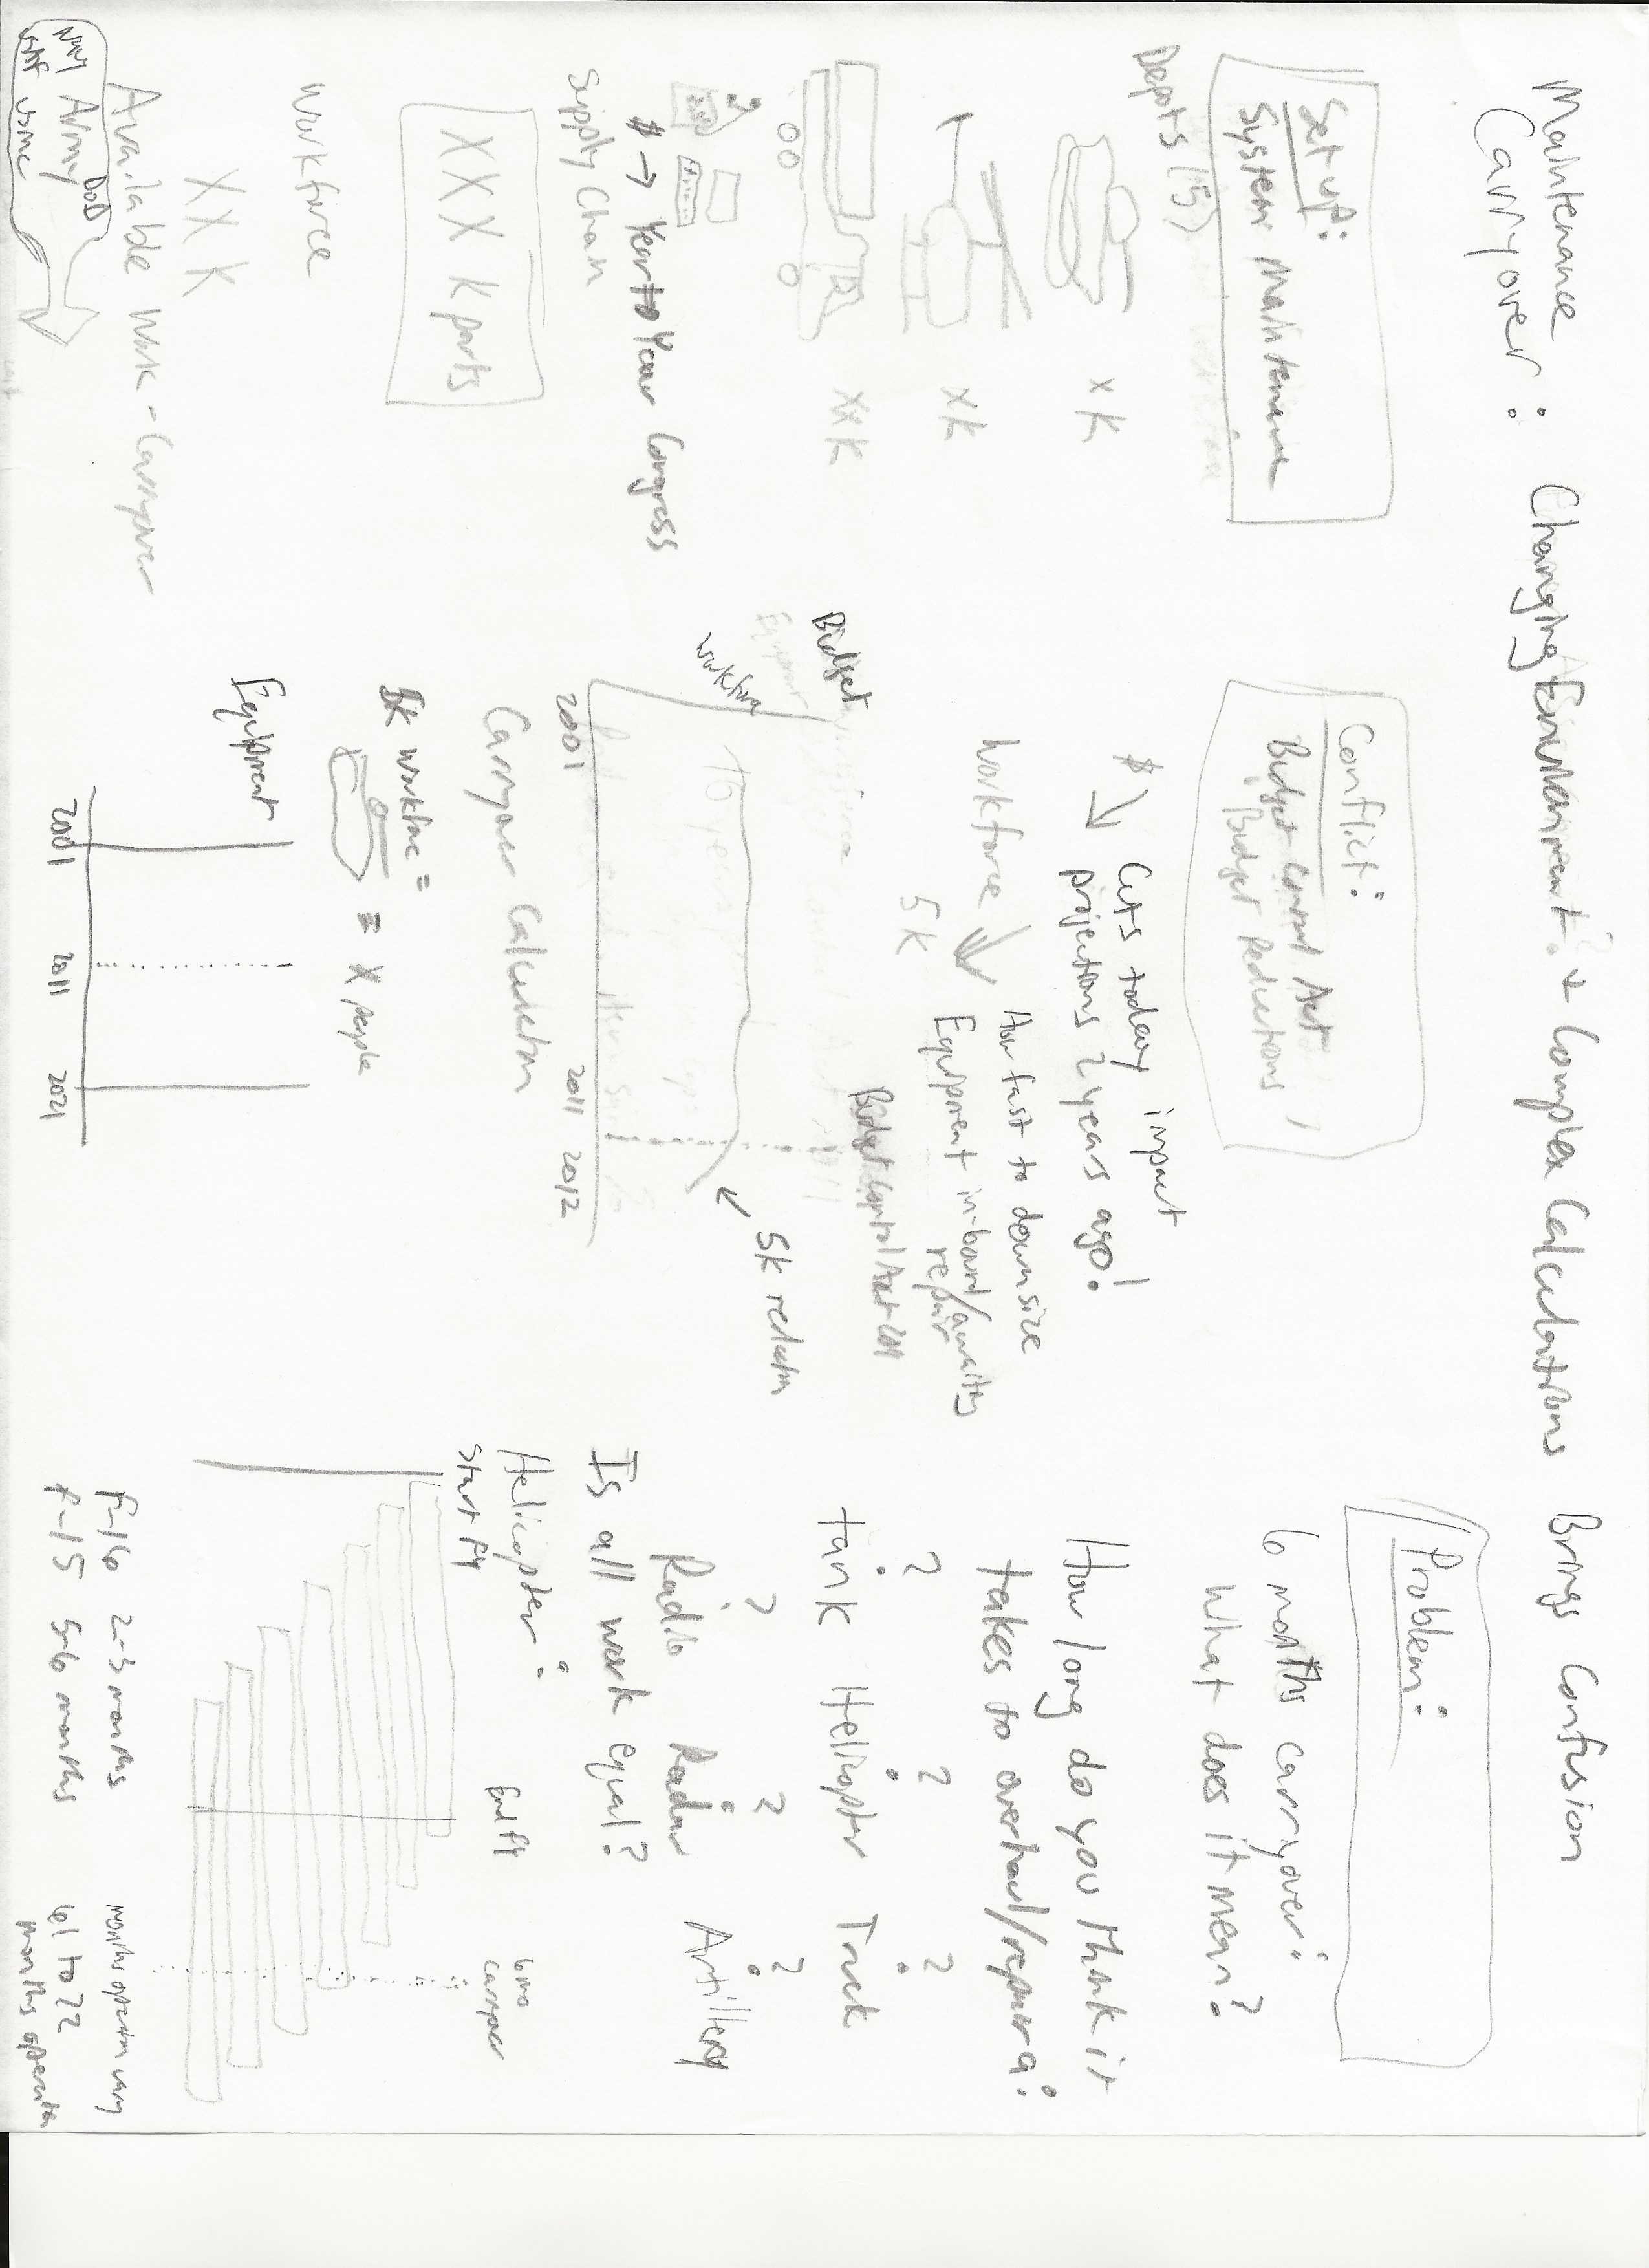 Maintenance
Carryover : Changing Environment + Complex Calculations Brings Confusion
Set up:
System Maintenance
Depots (5)
x K
x K
xx K
$ → Year to Year Congress
Supply Chain
XXX K parts
Workforce
XX K
Available Work - Carryover
Navy Army DoD
USAF USMC
Conflict:
Budget Control Act
Budget Reductions
$ Cuts today impact
projections 2 years ago!
Workforce
5K
How fast to downsize
Equipment in-bound/awaiting
repair
Budget Control Act 2011
Budget
Workforce
5K reduction
2001 2011 2012
Carryover Calculation
5K workforc =
= X people
Equipment
2001 2011 2021
Problem:
6 months carryover:
What does it mean?
How long do you think it
takes to overhaul/repair a:
? ? ?
tank Helicopter Truck
? ? ?
Radio Radar Artillery
Is all work equal?
Helicopter:
Start FY
End FY
6 mo
carryover
F-16 2-3 months
F-15 5-6 months
months operation vary
to 22
months operation